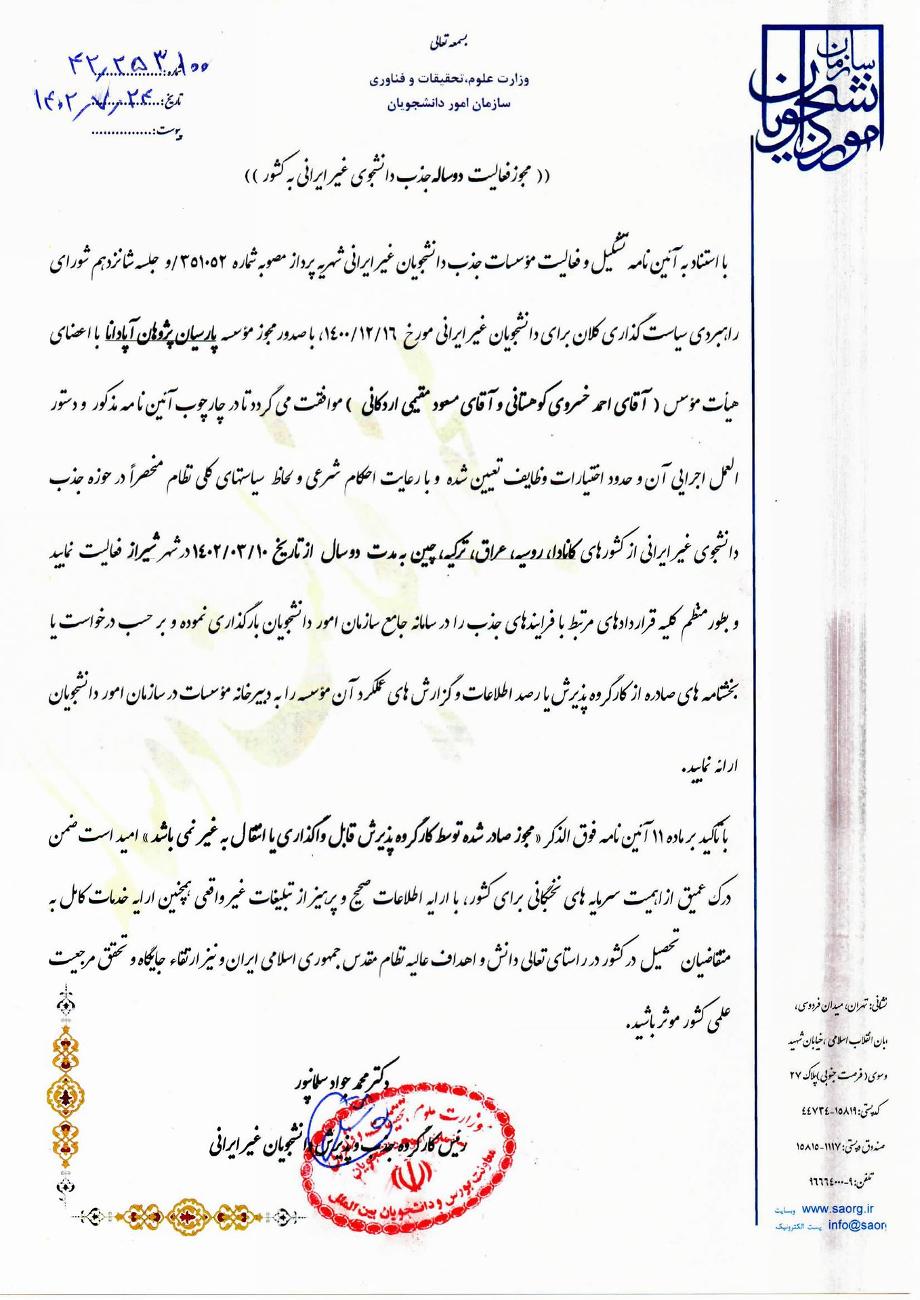 بسمه تعالی
وزارت علوم،تحقیقات و فناوری
سازمان امور دانشجویان
سازمان
امور دانشجویان
شماره: ۴۲/۲۵۳۱۰۰
تاریخ: ۱۴۰۲/۷/۲۴
پیوست:...............
(( مجوز فعالیت دوساله جذب دانشجوی غیر ایرانی به کشور ))
با استناد به آئین نامه تشکیل و فعالیت مؤسسات جذب دانشجویان غیر ایرانی شهریه پرداز مصوبه شماره ۳۵۱۰۵۲/و جلسه شانزدهم شورای
راهبردی سیاست گذاری کلان برای دانشجویان غیر ایرانی مورخ ۱۴۰۰/۱۲/۱۶، با صدور مجوز مؤسسه پارسیان پژوهان آپادانا با اعضای
هیأت مؤسس ( آقای احمد خسروی کوهستانی و آقای مسعود مقیمی اردکانی ) موافقت می گردد تا در چارچوب آئین نامه مذکور و دستور
العمل اجرایی آن و حدود اختیارات وظایف تعیین شده و با رعایت احکام شرعی و لحاظ سیاستهای کلی نظام منحصراً در حوزه جذب
دانشجوی غیر ایرانی از کشورهای کانادا، روسیه، عراق، ترکیه، چین به مدت دوسال از تاریخ ۱۴۰۲/۰۳/۱۰ در شهر شیراز فعالیت نمایید
و بطور منظم کلیه قراردادهای مرتبط با فرایندهای جذب را در سامانه جامع سازمان امور دانشجویان بارگذاری نموده و بر حسب درخواست یا
بخشنامه های صادره از کارگروه پذیرش یا رصد اطلاعات و گزارش های عملکرد آن مؤسسه را به دبیرخانه مؤسسات در سازمان امور دانشجویان
ارائه نمایید.
با تأکید بر ماده ۱۱ آئین نامه فوق الذکر « مجوز صادر شده توسط کارگروه پذیرش قابل واگذاری یا انتقال به غیر نمی باشد » امید است ضمن
درک عمیق از اهمیت سرمایه های نخبگانی برای کشور، با ارایه اطلاعات صحیح و پرهیز از تبلیغات غیر واقعی همچنین ارایه خدمات کامل به
متقاضیان تحصیل در کشور در راستای تعالی دانش و اهداف عالیه نظام مقدس جمهوری اسلامی ایران و نیز ارتقاء جایگاه و تحقق مرجعیت
علمی کشور موثر باشید.
دکتر محمد جواد سلمانپور
رئیس کارگروه جذب و پذیرش دانشجویان غیر ایرانی
وزارت علوم، تحقیقات و فناوری
معاونت بورس و دانشجویان بین الملل
نشانی: تهران، میدان فردوسی،
ابان انقلاب اسلامی ،خیابان شهید
وسوی( فرصت جنوبی)پلاک ۲۷
کدپستی:۱۵۸۱۹-۴۴۷۳۴
صندوق پستی:۱۱۱۷-۱۵۸۱۵
تلفن:۹-۹۶۶۶۴۰۰۰
وبسایت www.saorg.ir
پست الکترونیک info@saor